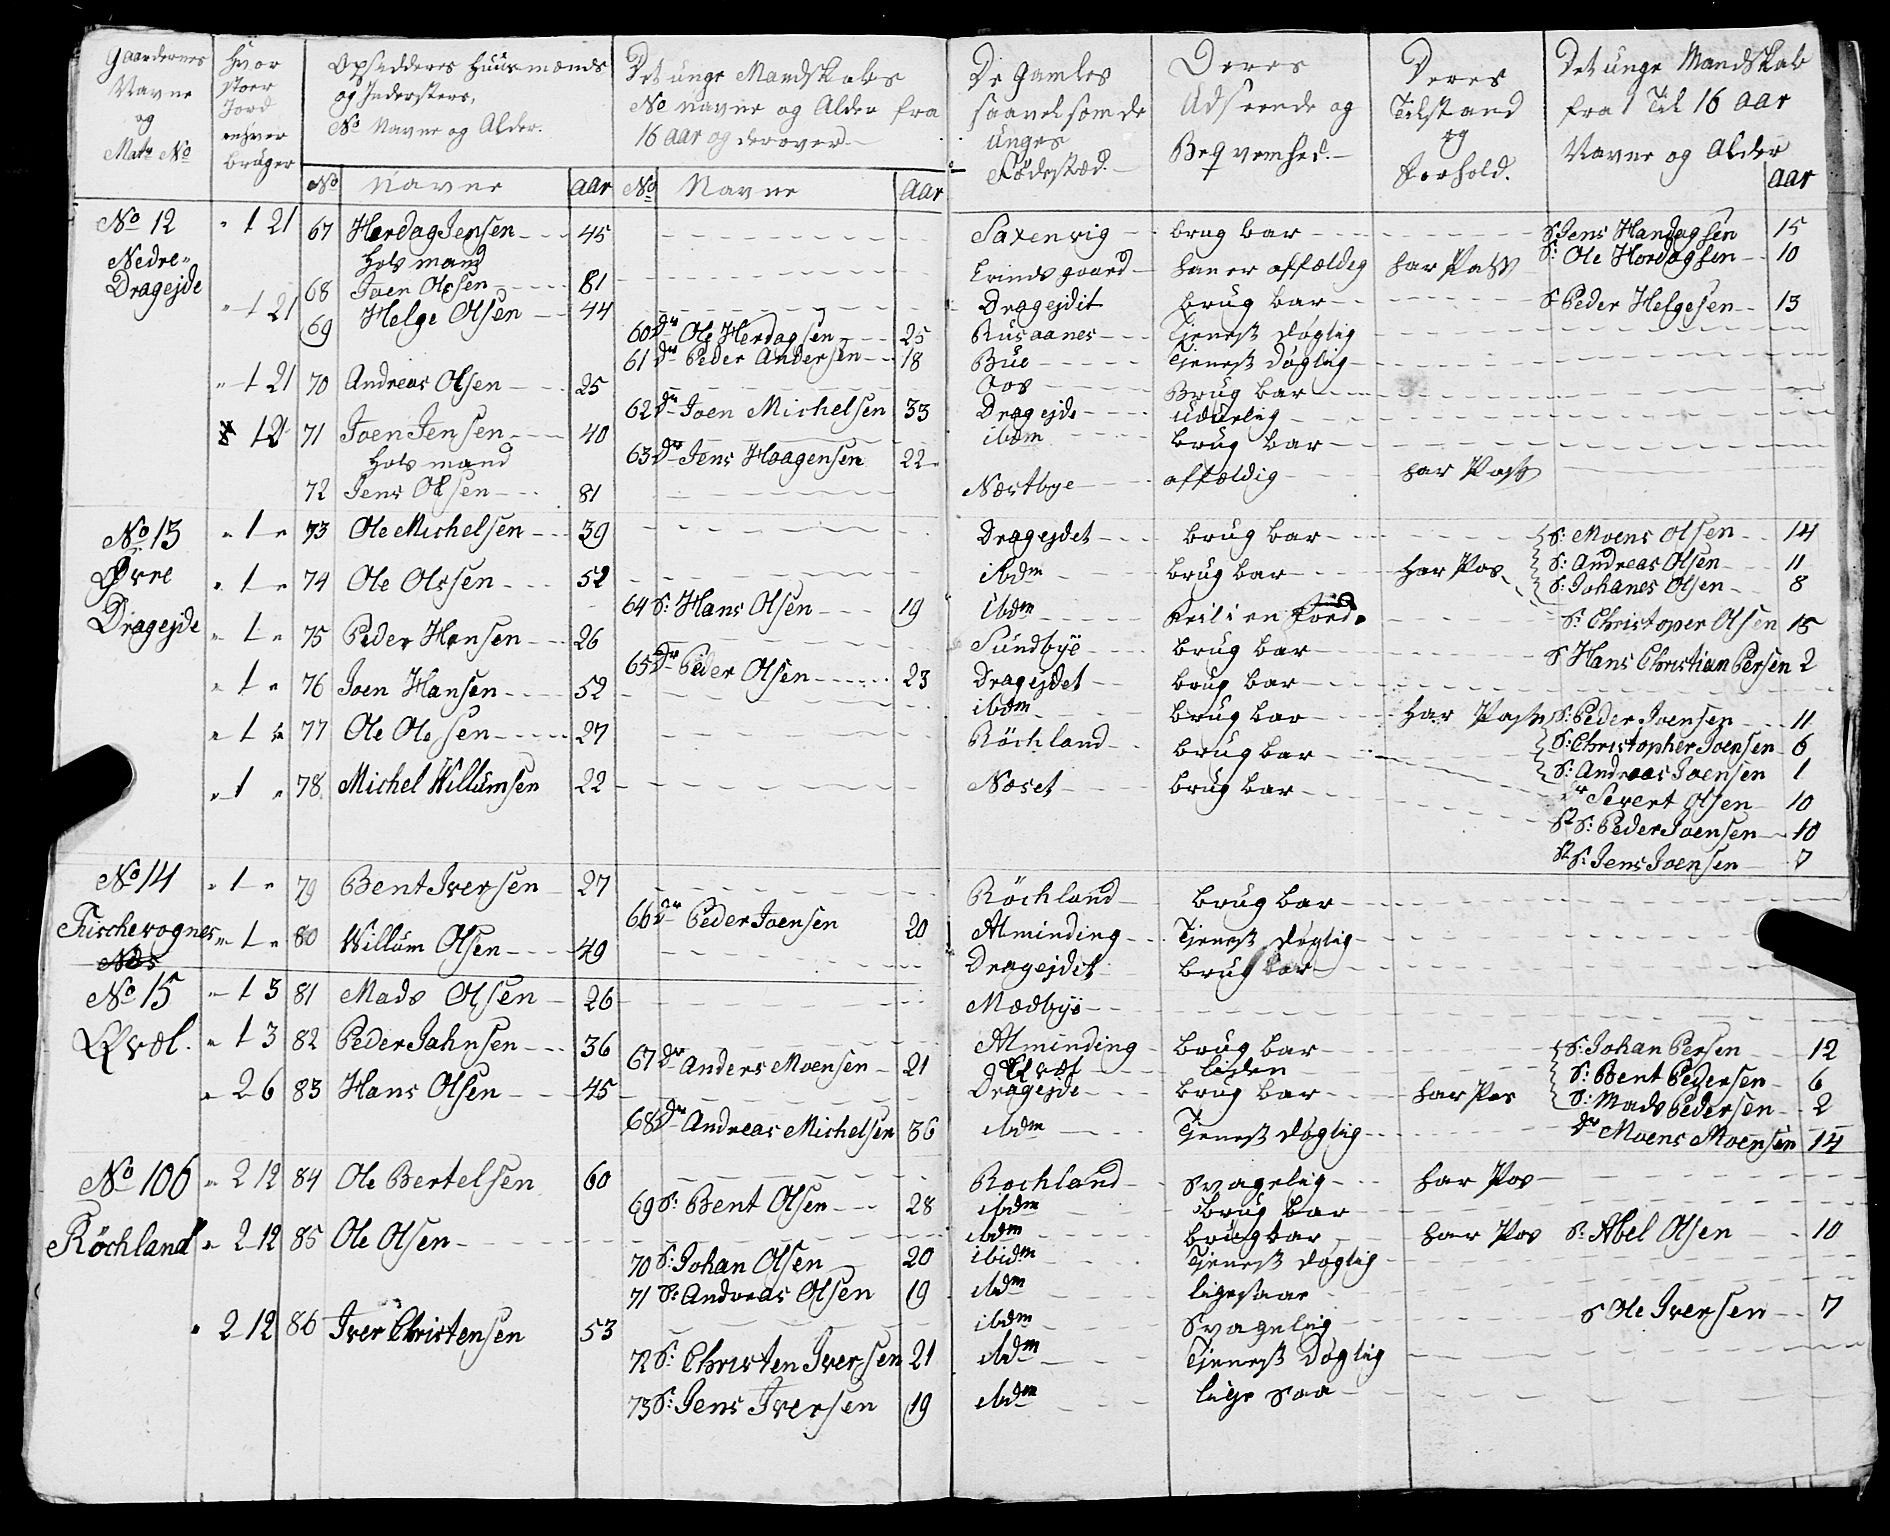 Gaardernes Navne og Matr No | Hvor stoer Jord enhver bruger | Opsidderes Huusmænds og Indersters, No Navne og Alder. | Det unge Mandskabs No navne og Alder fra 16 aar og derover | De Gamles saavelsom de unges Fødestæd. | Deres Udseende og Beqvemhed. | Deres Tilstand og Forhold. | Det unge Mandskab fra 1 Til 16 aar Navne og Alder
No Navne Aar | No Navne Aar | Aar
No 12 " 1 21 67 Herdag Jensen 45 | Saxenvig | brug bar | S Jens Handagsen 15
Nedre Holsmand | S: Ole Herdagsen 10
Dragejde 68 Joen Olsen 81 | Evindsgaard | han er affældig | har Pass
" 1 21 69 Helge Olsen 44 | Dragejdit | brug bar | S Peder Helgesen 13
60 Dr Ole Herdagsen 25 | Rusaanes | Tieneß døglig
61 Dr Peder Andersen 18 | Bue | Tieneß Døglig
" 1 21 70 Andreas Olsen 25 | Brug bar
62 Dr Joen Michelsen 33 | Dragejde | udurlig
12 71 Joen Jensen 40 | ibdm | brug bar
Holsmand 63 Dr Jens Haagensen 22
72 Jens Olsen 81 | Næstbye | affældig | har Pass
No 13 " 1 " 73 Ole Michelsen 39 | Dragejdet | brug bar | S: Moens Olsen 14
Øvre " 1 " 74 Ole Olssen 52 | ibdm | brug bar | har Pas | S: Andreas Olsen 11
S: Johanes Olsen 8
Dragejde 64 S: Hans Olsen 19 | ibdm | S: Christoper Olsen 15
" 1 " 75 Peder Hansen 26 | Sundbye | brug bar | S Hans Christian Persen 2
65 Dr Peder Olsen 23 | Dragejdet | brug bar
" 1 " 76 Joen Hansen 52 | ibdm | brug bar | har Pass | S: Peder Joensen 11
" 1 " 77 Ole Olesen 27 | Röchland | brug bar | S: Christopher Joensen 6
S: Andreas Joensen 1
" 1 " 78 Michel Willumsen 22 | Næset | brug bar | Dr Severt Olsen 10
St S: Peder Joensen 10
St S: Jens Joensen 7
No 14 " 1 " 79 Bent Iversen 27 | Röchland | brug bar
Fischevognes 66 Dr Peder Joensen 20 | Alminding | Tieneß døglig
Næs " 1 " 80 Willum Olsen 49 | Dragejdet | brug bar
No 15 " 1 3 81 Mads Olsen 26 | Mædbye
Qvæl. " 1 3 82 Peder Jahnsen 36 | Alminding | brug bar | S: Johan Persen 12
67 Dr Anders Moensen 21 | Qvæl | liden | S: Bent Pedersen 6
" 2 6 83 Hans Olsen 45 | Dragejde | brug bar | har Pas | S: Mads Pedersen 2
68 Dr Andreas Michelsen 36 | ibdm | Tieneß døglig | Dr Moens Moensen 14
No 106 " 2 12 84 Ole Bertelsen 60 | Rochland | svagelig | har Pas
69 S: Bent Olsen 28 | ibdm | brug bar
Röchland " 2 12 85 Ole Olsen | ibdm | brug bar | har Pas | S: Abel Olsen 10
70 S: Johan Olsen 20 | ibidm | Tieneß døglig
71 S: Andreas Olsen 19 | ibdm | ligesaae
" 2 12 86 Iver Christensen 53 | ibdm | Svagelig | S Ole Iversen 7
72 S: Christen Iversen 21 | ibdm | Tieneß Døglig
73 S: Jens Iversen 19 | ibdm | lige saa